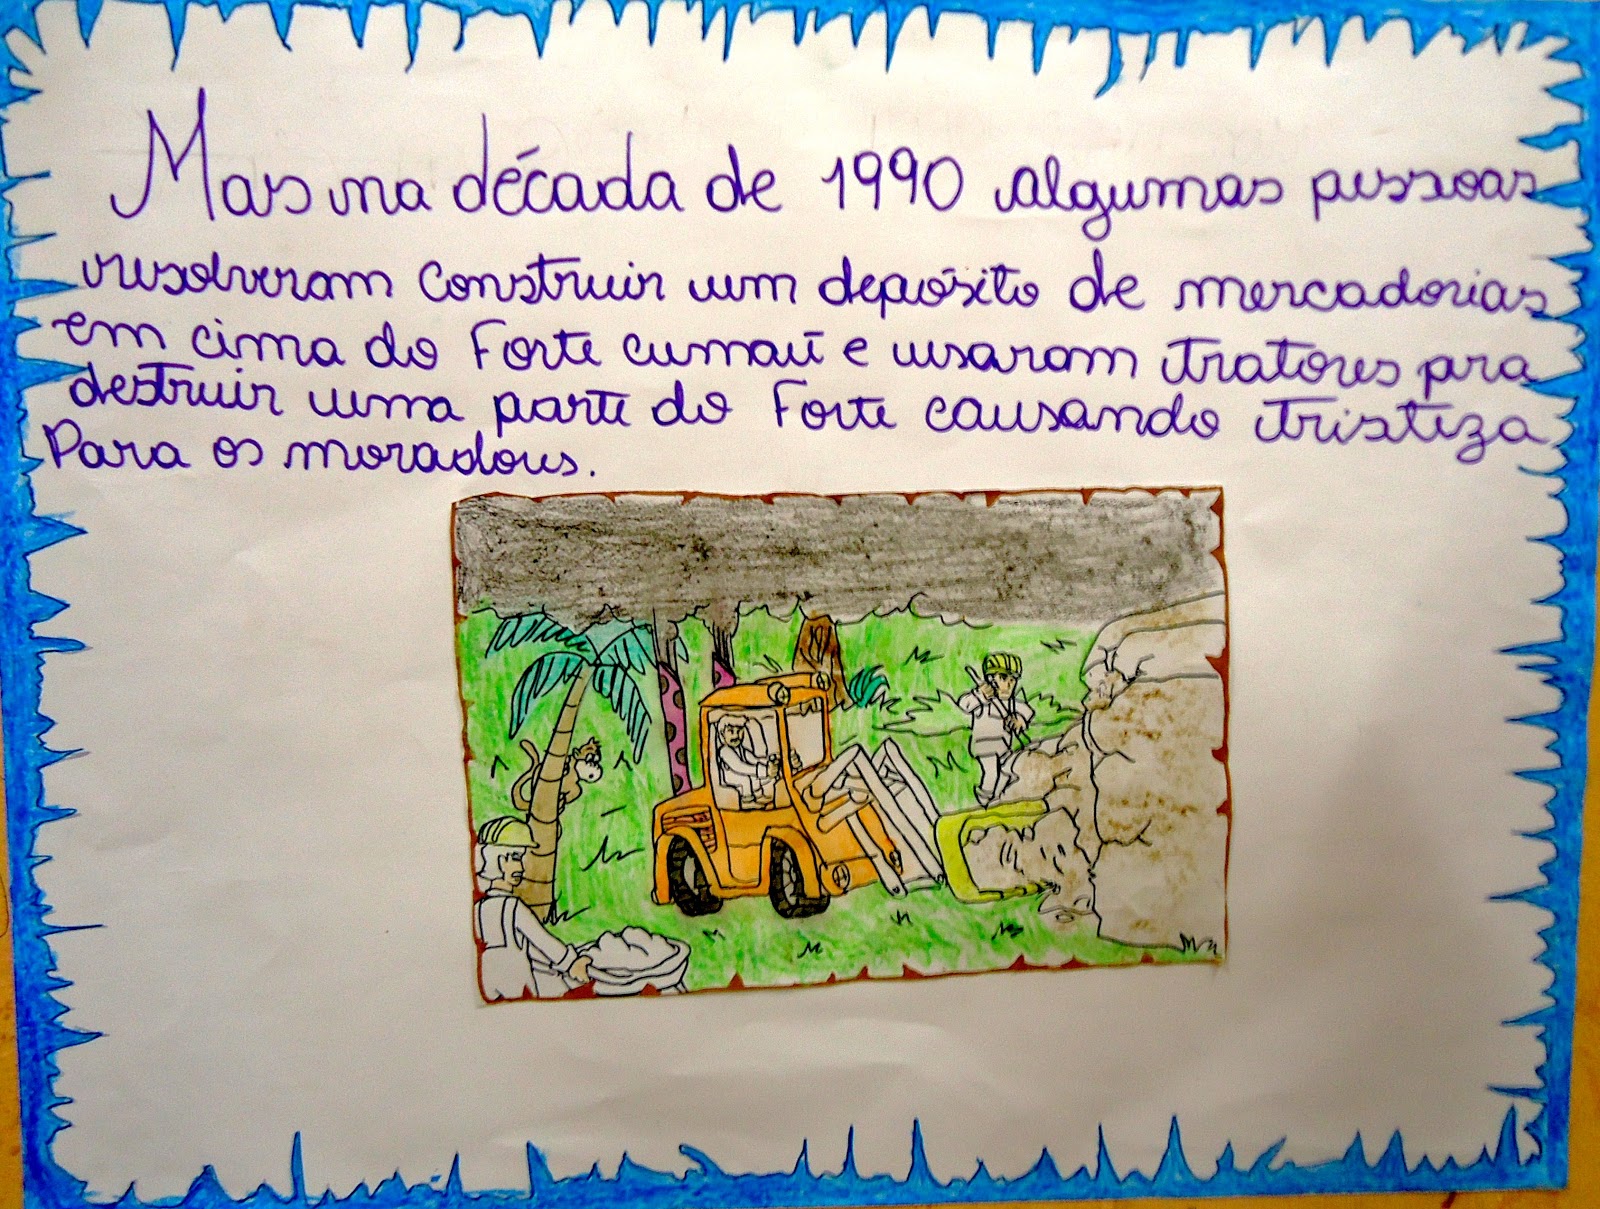 Mas na década de 1990 algumas pessoas
resolveram construir um depósito de mercadorias
em cima do Forte cumaú e usaram tratores pra
destruir uma parte do Forte causando tristeza
Para os moradores.